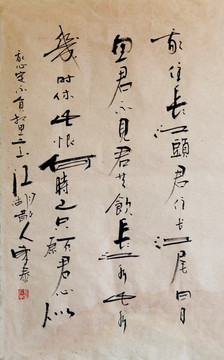 我住長江頭君住长江尾日日
思君不見君共飲長江水此水
幾時休此恨何時已只愿君心似
我心定不負相思意